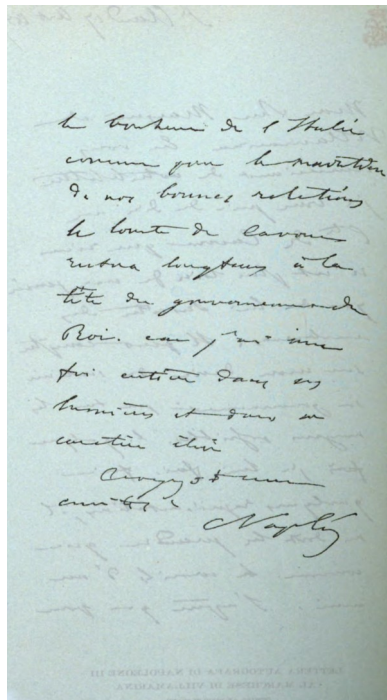 le bonheur de l'Italie
comme pour le maintien
de nos bonnes relations
le Comte de Cavour
restera longtems à la
tête du gouvernement du
Roi. car j'ai une
foi entière dans ses
lumières et dans son
caractère élevé
Croyez à mon
amitié
Napoléon